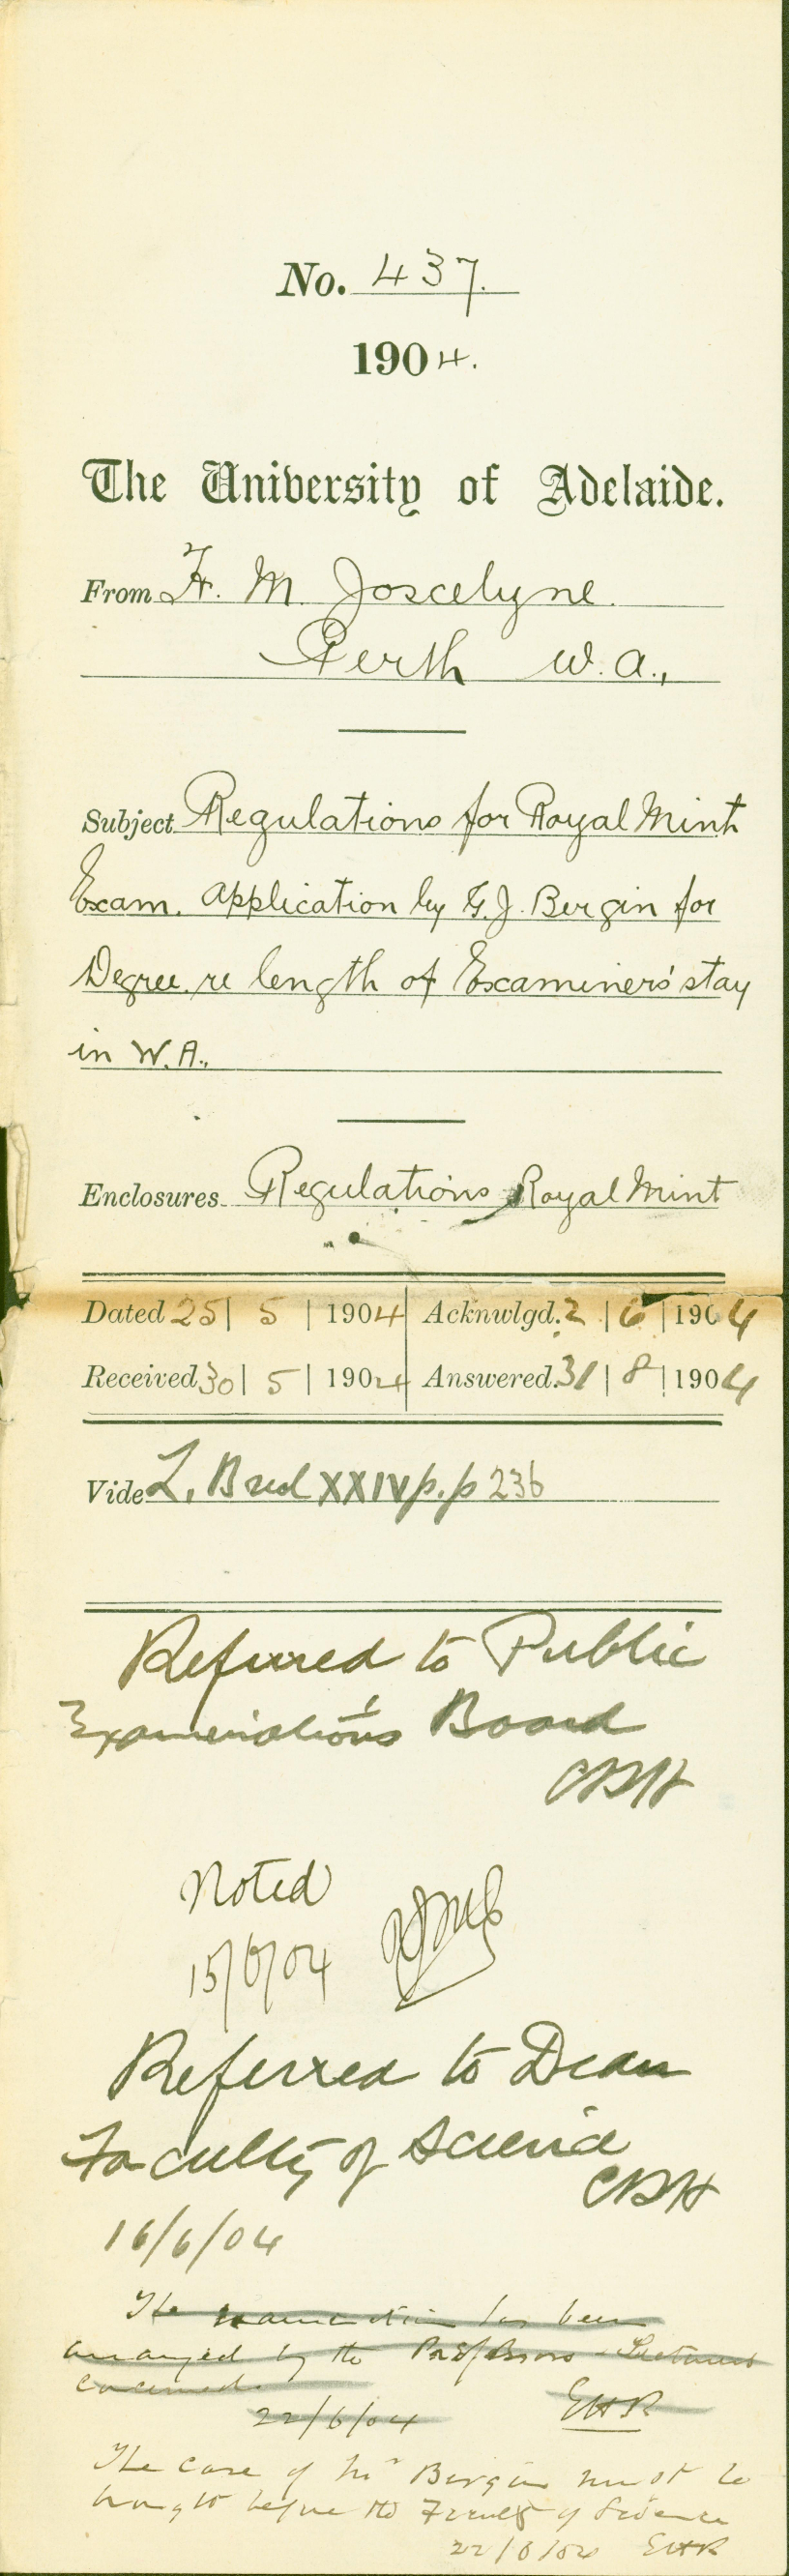 No. 437.
1904.
The University of Adelaide.
From F. M. Joscelyne.
Perth W.A.,
Subject Regulations for Royal Mint
Exam. Application by G. J. Bergin for
Degree. re length of Examiners' stay
in W.A.,
Enclosures Regulations Royal Mint
Dated 25 | 5 | 1904 Acknwlgd. 2 | 6 | 1904
Received 30 | 5 | 1904 Answered. 31 | 8 | 1904
Vide L. XXIV p.p 236
Referred to Public
Examinations Board
CRH
Noted
15/6/04
Referred to Dean
Faculty of Science
CRH
16/6/04
The examination has been
arranged by the Professors - Lecturers
concerned.
22/6/04 EHR
The case of Mr Bergin must be
brought before the Faculty of Science
22/6/04 EHR